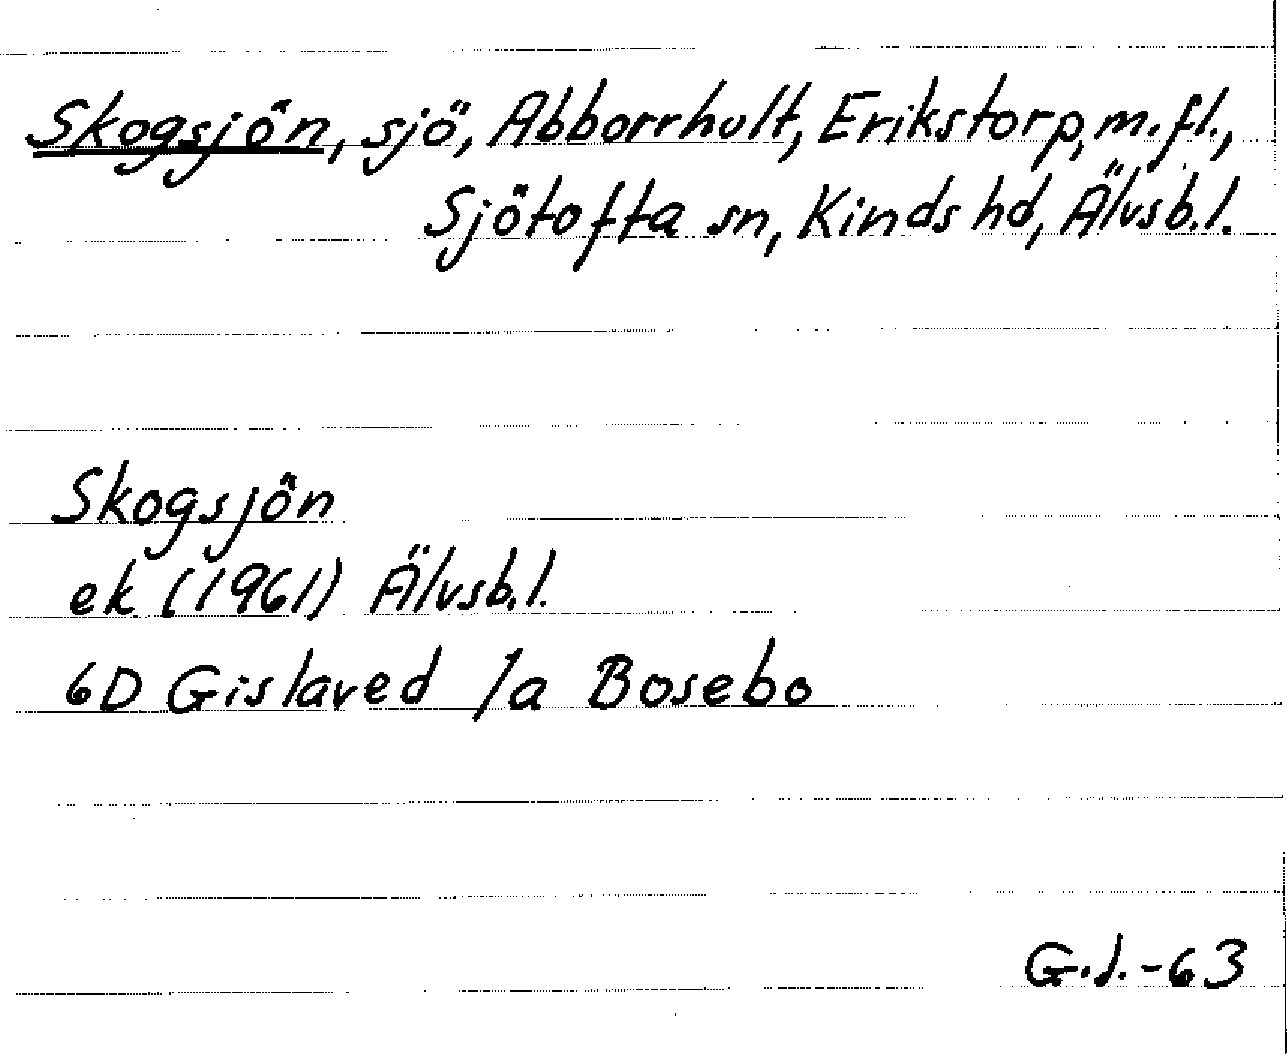 Skogsjön, sjö, Abborrhult, Erikstorp, m.fl.,
Sjötofta sn, Kinds hd, Älvsb.l.
Skogsjön
ek (1961) Älvsb.l.
6D Gislaved /a Bosebo
G.J.-63